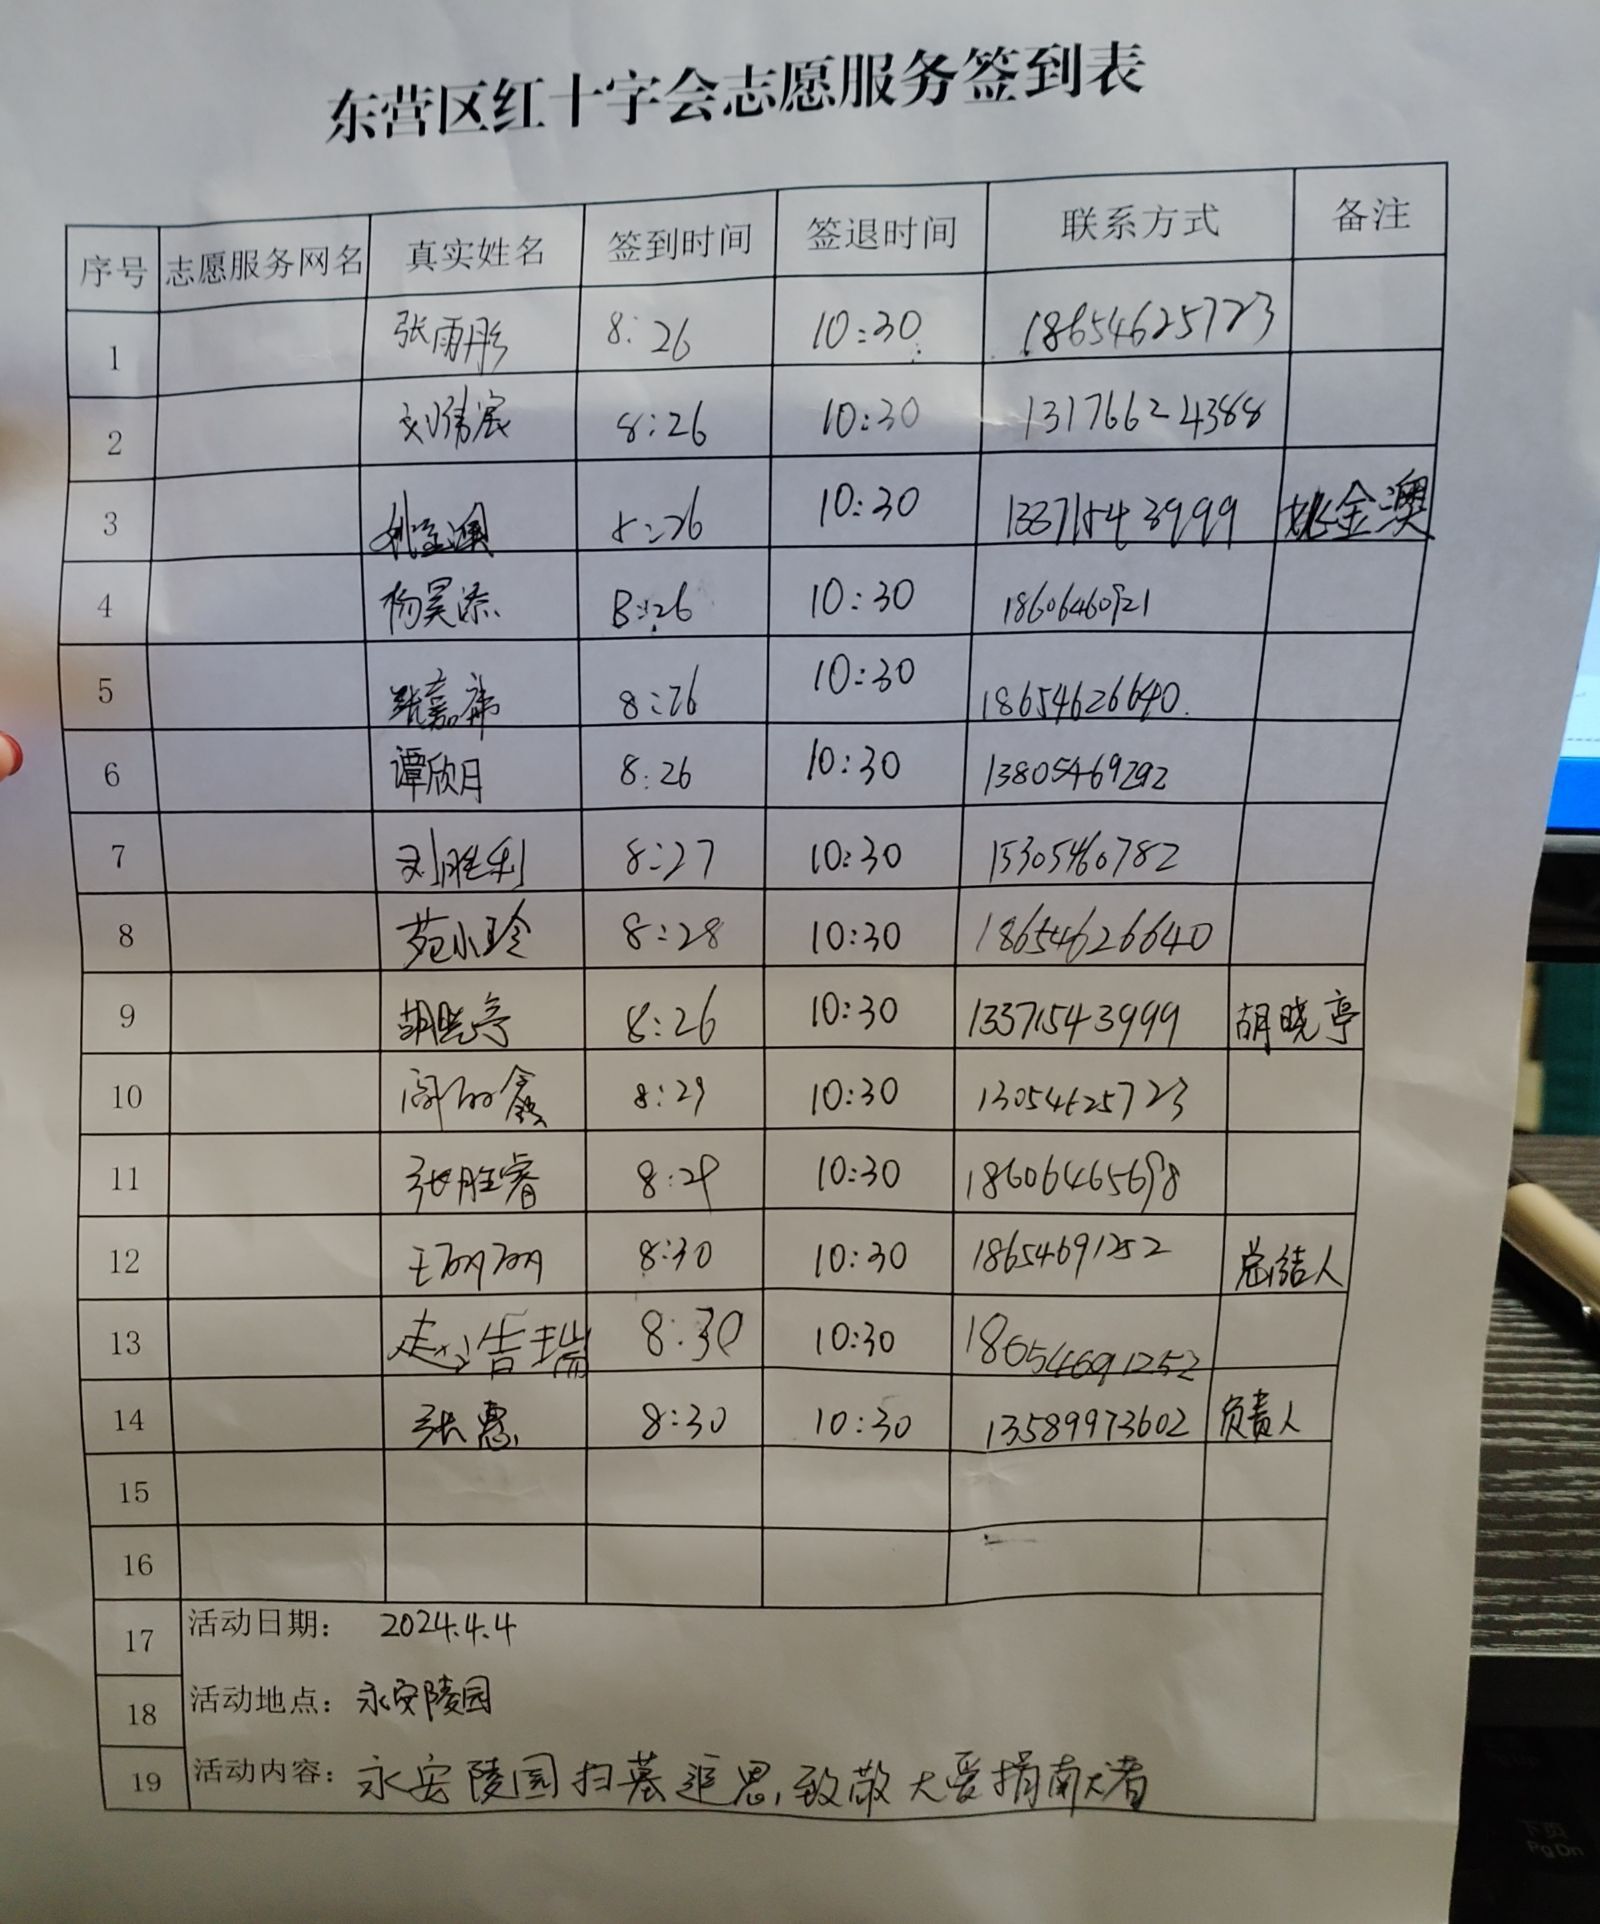 东营区红十字会志愿服务签到表
序号 志愿服务网名 真实姓名 签到时间 签退时间 联系方式 备注
1 张雨彤 8:26 10:30 18654625723
2 刘伟宸 8:26 10:30 13176624388
3 姚金澳 8:26 10:30 13371543999 姚金澳
4 杨昊添 8:26 10:30 18606460921
5 张嘉 8:26 10:30 18654626640
6 谭欣月 8:26 10:30 13805469292
7 刘胜利 8:27 10:30 15305460782
8 苑小玲 8:28 10:30 18654626640
9 胡晓亭 8:26 10:30 13371543999 胡晓亭
10 鑫 8:29 10:30 13054625723
11 张胜睿 8:29 10:30 18606465698
12 王丽丽 8:30 10:30 18654691252 总结人
13 赵浩瑞 8:30 10:30 18654691252
14 张惠 8:30 10:30 13589973602 负责人
15
16
17 活动日期: 2024.4.4
18 活动地点: 永安陵园
19 活动内容: 永安陵园扫墓追思,致敬大爱捐献者
下页
PgDn